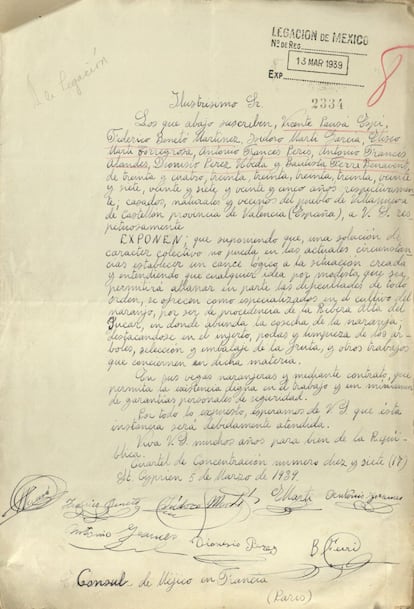 LEGACION DE MEXICO
Nº DE REG.
13 MAR 1939
EXP.
2334
8
A la Legación
Ilustrisimo Sr.
Los que abajo suscriben, Vicente Pausa
Federico Benetó Martinez, Isidoro Martí García, Eliseo
Martí Torregrosa, Antonio Francés Peres, Antonio Francés
Alandes, Dionisio Perez Ubeda y Bautista Ferri Benavent
de treinta y cuatro, treinta, treinta, treinta, treinta, veinte
y siete, veinte y siete y veinte y cinco años respectivamen-
te; casados, naturales y vecinos del pueblo de Villanueva
de Castellon provincia de Valencia (España), a V. S. res
petuosamente
EXPONEN; que suponiendo que, una solución de
caracter colectivo no pueda en las actuales circunstan-
cias establecer un cauce lógico a la situación creada
y entendiendo que cualquier idea por modesta que sea,
permitirá allanar en parte las dificultades de todo
orden, se ofrecen como especializados en el cultivo del
naranjo, por ser de procedencia de la Ribera Alta del
Jucar, en donde abunda la cosecha de la naranja;
destacandose en el injerto, podas y limpieza de los ár-
boles, selección y embalaje de la fruta, y otros trabajos
que conciernen en dicha materia.
En sus vegas naranjeras y mediante contrato, que
permita la existencia digna en el trabajo y un minimum
de garantias personales de seguridad.
Por todo lo expuesto, esperamos de V. S. que esta
instancia será debidamente atendida.
Viva V. S. muchos años para bien de la Repú-
blica.
Cuartel de Concentración numero diez y siete (17)
St. Cyprien 5 de Marzo de 1939.
Federico Benetó Isidoro Martí E. Martí Antonio Frances
Antonio Frances Dionisio Perez B. Ferri
Consul de Méjico en Francia
(Paris)